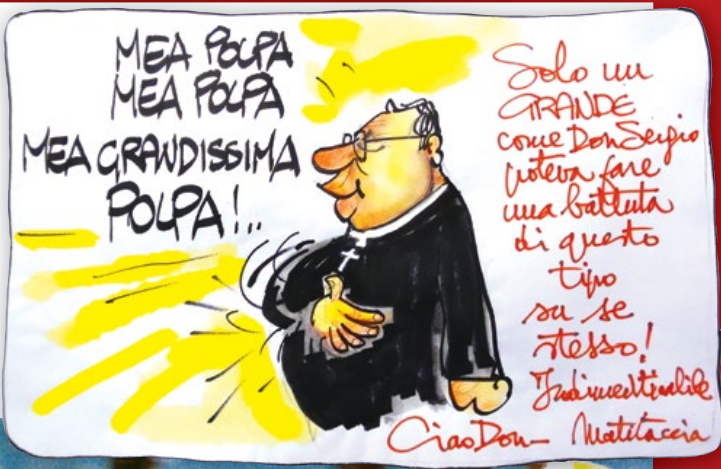 MEA POLPA
MEA POLPA
MEA GRANDISSIMA
POLPA!..
Solo un
GRANDE
come Don Sergio
poteva fare
una battuta
di questo
tipo
su se
stesso!
Indimenticabile
Ciao Don- Matitaccia